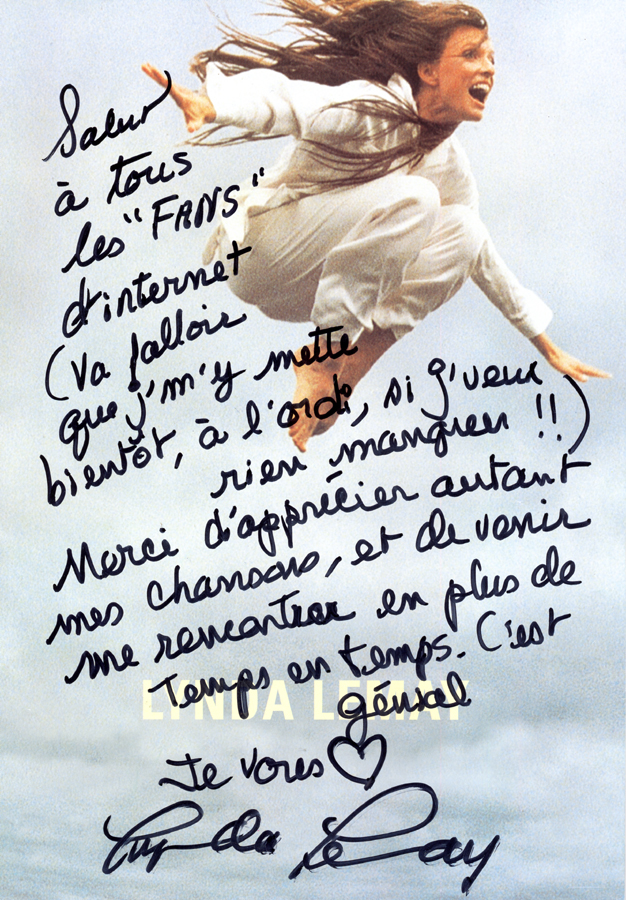 Salut
à tous
les "FANS"
d'internet
(Va falloir
que j'm'y mette
bientôt, à l'ordi, si j'veux
rien manquer !!)
Merci d'apprécier autant
mes chansons, et de venir
me rencontrer en plus de
temps en temps. C'est
génial
LYNDA LEMAY
Je vous ♡
Lynda Lemay